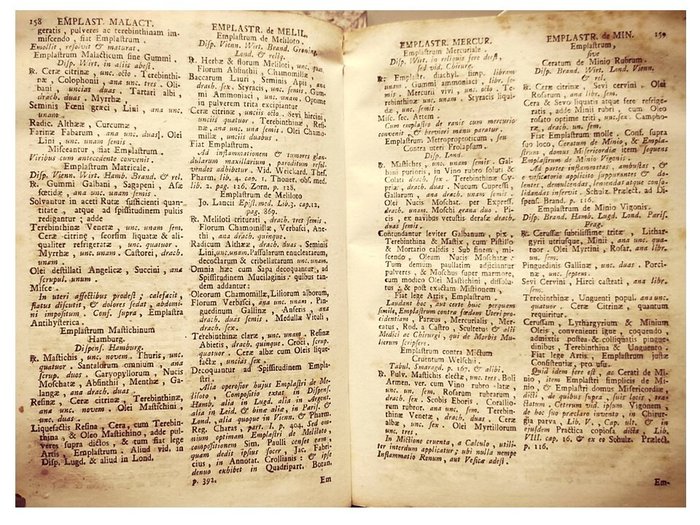 158 EMPLAST. MALACT.
geratis, pulveres ac terebinthinam im-
miscendo, fiat Emplastrum.
Emollit, resolvit & maturat.
Emplastrum Malacticum sine Gummi.
Disp. Wirt. in aliis abest.
℞. Ceræ citrinæ, unc. octo. Terebinthi-
næ, Colophonii, ana unc. tres. Oli-
bani, uncias duas. Tartari albi,
drach. duas. Myrrhæ,
Seminis Fœni græci, Lini, ana unc.
unam.
Radic. Althææ, Curcumæ,
Farinæ Fabarum, ana unc. duas. Olei
Lini, unc. unam semis.
Misceantur, fiat Emplastrum.
Viribus cum antecedente convenit.
Emplastrum Matricale.
Disp. Vienn. Wirt. Hamb. Brand. & rel.
℞. Gummi Galbani, Sagapeni, Asæ
fœtidæ, ana unc. unam semis.
Solvantur in aceti Rutæ sufficienti quan-
titate, atque ad spissitudinem pultis
redigantur; adde
Terebinthinæ Venetæ, unc. unam sem.
Ceræ citrinæ, seorsim liquatæ & ali-
qualiter refrigeratæ, unc. quatuor.
Myrrhæ, unc. unam. Castorei, drach.
unam.
Olei destillati Angelicæ, Succini, ana
scrupul. unum.
Misce.
In uteri affectibus prodest; calefacit,
flatus discutit, & dolores sedat, abdomi-
ni impositum. Conf. supra, Emplastra
Antihysterica.
Emplastrum Mastichinum
Hamburg.
Dispens. Hamburg.
℞. Mastichis, unc. novem. Thuris, unc.
quatuor. Santalorum omnium, ana
scrup. duas. Caryophyllorum, Nucis
Moschatæ, Absinthii, Menthæ, Ga-
langæ, ana drach. duas.
Resinæ, Ceræ citrinæ, Terebinthinæ,
ana unc. novem. Olei Mastichini,
unc. duas.
Liquefactis Resina, Cera, cum Terebin-
thina, & Oleo Mastichino, adde pul-
veres supra dictos, & cum fiat lege
Artis, Emplastrum. Aliud vid. in
Disp. Lugd. & aliud in Lond.
EMPLASTR. de MELIL.
Emplastrum de Meliloto.
Disp. Vienn. Wirt. Brand. Groning.
Lond. & relq.
℞. Herbæ & florum Meliloti, unc. sex.
Florum Absinthii, Chamomillæ,
Baccarum Lauri, Seminis Apii, ana
drach. sex. Styracis, unc. semis. Gum-
mi Ammoniaci, unc. unam. Optime
in pulverem trita excipiantur
Ceræ citrinæ, unciis octo. Sevi hircini,
unciis quatuor. Terebinthinæ, Resi-
næ, ana unc. una semis. Olei Chamo-
millæ, unciis duabus.
Fiat Emplastrum.
Ad inflammationem & tumores glan-
dularum maxillarium, parotidum resol-
vendos adhibetur. Vid. Weickard. Thes.
Pharm. lib. 4. cap. 1. Thonet. obs. med.
lib. 2. pag. 126. Zorn. p. 218.
Emplastrum de Meliloto
Jo. Lancii Epist. med. Lib. 3. cap. 12,
pag. 869.
℞. Meliloti crituratі, drach. tres semis.
Florum Chamomillæ, Verbasci, Ane-
thi, ana drach. quinque.
Radicum Althææ, drach. duas. Semini
Lini, unc. unam. Passularum enuclearum,
decoctarum & cribellatarum, unc. unam.
Omnia hæc cum Sapa decoquantur, ad
Spissitudinem Mucilaginis: quibus ad-
dantur
Oleorum Chamomillæ, Liliorum alborum,
Florum Verbasci, ana unc. unam. Pin-
guedinum Gallinæ, Anseris, ana
drach. duas semis. Medullæ Vituli,
drach. sex.
Terebinthinæ claræ, unc. unam. Resinæ
Abietis, drach. quinque. Croci, scrup.
quatuor. Ceræ albæ cum Oleis lique-
factæ, uncias sex.
Decoquantur ad Spissitudinem Empla-
stri.
Alia operosior hujus Emplastri de Me-
liloto, Compositio extat, in Dispens.
Hamb. alia in Lugd. alia in Argent.
alia in Leid. & in bina alia, in Paris. &
Lond. alia quoque in Vienn. & Pharm.
Reg. Charas, part. I. p. 404. sed om-
nium optimam Emplastri de Meliloto,
compositionem Sim. Paulli censet eam,
quam dedit ipsius socer, Jac. Fabri-
cius, in Annotat. Crollianis: & ipse
denuo exhibet in Quadripart. Botan.
p. 392.
Em
EMPLASTR. MERCUR.
Emplastrum Mercuriale.
Disp. Wirt. in reliquis fere deest,
sed vid. Charas.
℞. Emplastr. diachyl. simp. libram
unam. Gummi ammoniaci, libr. se-
mis. Mercurii vivi, unc. octo. Te-
rebinthinæ unc. unam. Styracis liqui-
dæ, unc. semis.
Misc. sec. Artem.
Cum emplastris de ranis cum mercurio
convenit, & breviori manu paratur.
Emplastrum Metroproptoticum, seu
Contra uteri Prolapsum.
Disp. Lond.
℞. Mastiches, unc. unam semis. Gal-
bani purioris, in Vino rubro soluti &
Colati, drach. sex. Terebinthinæ Cy-
priæ, drach. duas. Nucum Cupressi,
Gallarum, ana drach. unam semis.
Olei Nucis Moschat. per Express.
drach. unam. Moschi, grana duo. Pi-
cis, ex navibus vetustis derasæ drach.
duas semis.
Conjundantur leviter Galbanum, pix,
Terebinthina & Mastix, cum Pistillo &
Mortario calidis: Sub finem, cum
moderato: Oleum Nucis Moschatæ:
Tum demum paullatim adjiciantur
pulveres, & Moschus super marmore,
cum modico Olei Mastichini, dissolu-
tus, & post exactam Mistionem,
Fiat lege Artis, Emplastrum.
Laudatur hoc, aut certe huic perquam
simile, Emplastrum contra fœdere Uteri pro-
cidentiam, a Paræus, Mercurialis, Mer-
catus, Rod. a Castro, Scultetus & alii
Medici ac Chirurgi, qui de Morbis Mu-
lierum scripsere.
Emplastrum contra Mictum
Cruentum Welschii.
Tabul. Smaragd. p. 167. & alibi.
℞. Pulv. Mastichis electæ, unc. tres. Boli
Armen. ver. cum Vino rubro lotæ,
unc. un. sem. Rosarum rubrarum,
drach. sex. Scobis Eboris, Corallio-
rum rubror. ana unc. sem. Terebin-
thinæ Venetæ, drach. duas. Ceræ
albæ, unc. sex. Olei Myrtillorum,
unc. tres.
In Mictione cruenta, a Calculo, utili-
ter interdum applicatur; ubi nulla nempe
Inflammatio Renum, aut Vesicæ adest.
EMPLASTR. de MIN. 159
Emplastrum,
sive
Ceratum de Minio Rubrum.
Disp. Brand. Wirt. Lond. Vienn.
& rel.
℞. Ceræ citrinæ, Sevi cervini, Olei
Rosarum, ana libram.
Cera & Sevo liquatis atque fere refrige-
ratis, adde Minii rubri, cum Oleo
rosato optime triti, unc. sex. Campho-
ræ, drach. un. sem.
Fiat Emplastrum molle. Conf. supra
suo loco, Ceratum de Minio, & Empla-
strum, domus Misericordiæ item sequens
Emplastrum de Minio Vigonis.
Ad partes inflammatas, ambustas, &
vesicatoriis applicito suppurantes & do-
lentes, demulcendas, leniendas atque conso-
lidandas inservit. Schulz. Prælect. ad Di-
spens. Brand. p. 116.
Emplastrum de Minio Vigonis.
Disp. Brand. Hamb. Lugd. Lond. Paris.
Prag.
℞. Cerussæ subtilissime tritæ, Lithar-
gyrii utriusque, Minii, ana unc. qua-
tuor. Olei Myrtini, Rosar. ana libr.
un. sem.
Pinguedinis Gallinæ, unc. duas. Porci-
næ, unc. septem.
Sevi Cervini, Hirci castrati, ana libr.
sem.
Terebinthinæ, Unguenti populi, ana unc.
quatuor. Ceræ Citrinæ, quantum
requiritur.
Cerussam, Lythargyrium & Minium
Oleis, convenienti igne, coquendo,
admixtis postea & colliquatis pingue-
dinibus, Terebinthina & Unguento:
Fiat lege Artis, Emplastrum justæ
Consistentiæ, pro usu.
Quid idem fere est, ac Cerati de Mi-
nio, item Emplastri simplicis de Mi-
nio, & Emplastri domus Misericordiæ,
de quibus supra, suis locis,
Ceterum vid. ipsum. Vigonem,
de hoc suo præclaro invento, in Chirur-
gia parva, Lib. V. Cap. ult. & in
ejusdem Practica copiosa dicta, Lib.
VIII. cap. 16. & ex eo Schulz. Prælect.
p. 116.
Em-